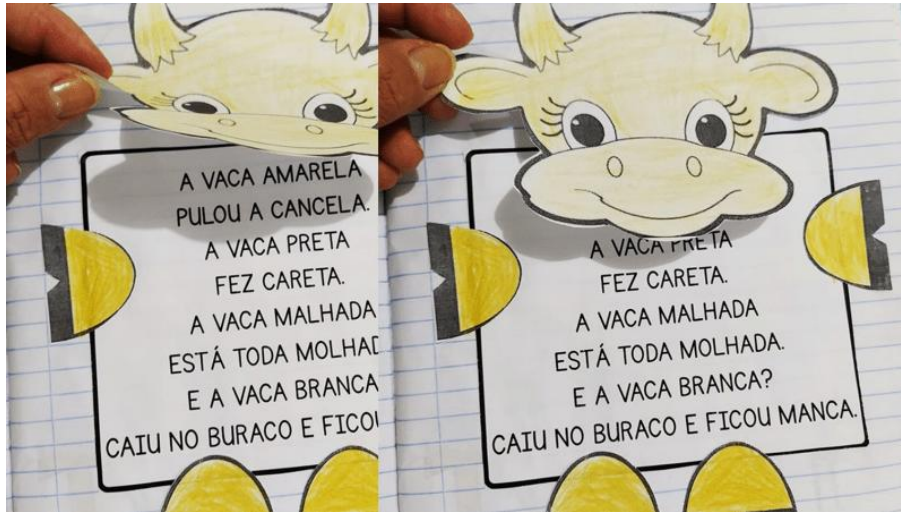 A VACA AMARELA
PULOU A CANCELA.
A VACA PRETA
FEZ CARETA.
A VACA MALHADA
ESTÁ TODA MOLHAD
E A VACA BRANCA
CAIU NO BURACO E FICOU
A VACA PRETA
FEZ CARETA.
A VACA MALHADA
ESTÁ TODA MOLHADA.
E A VACA BRANCA?
CAIU NO BURACO E FICOU MANCA.